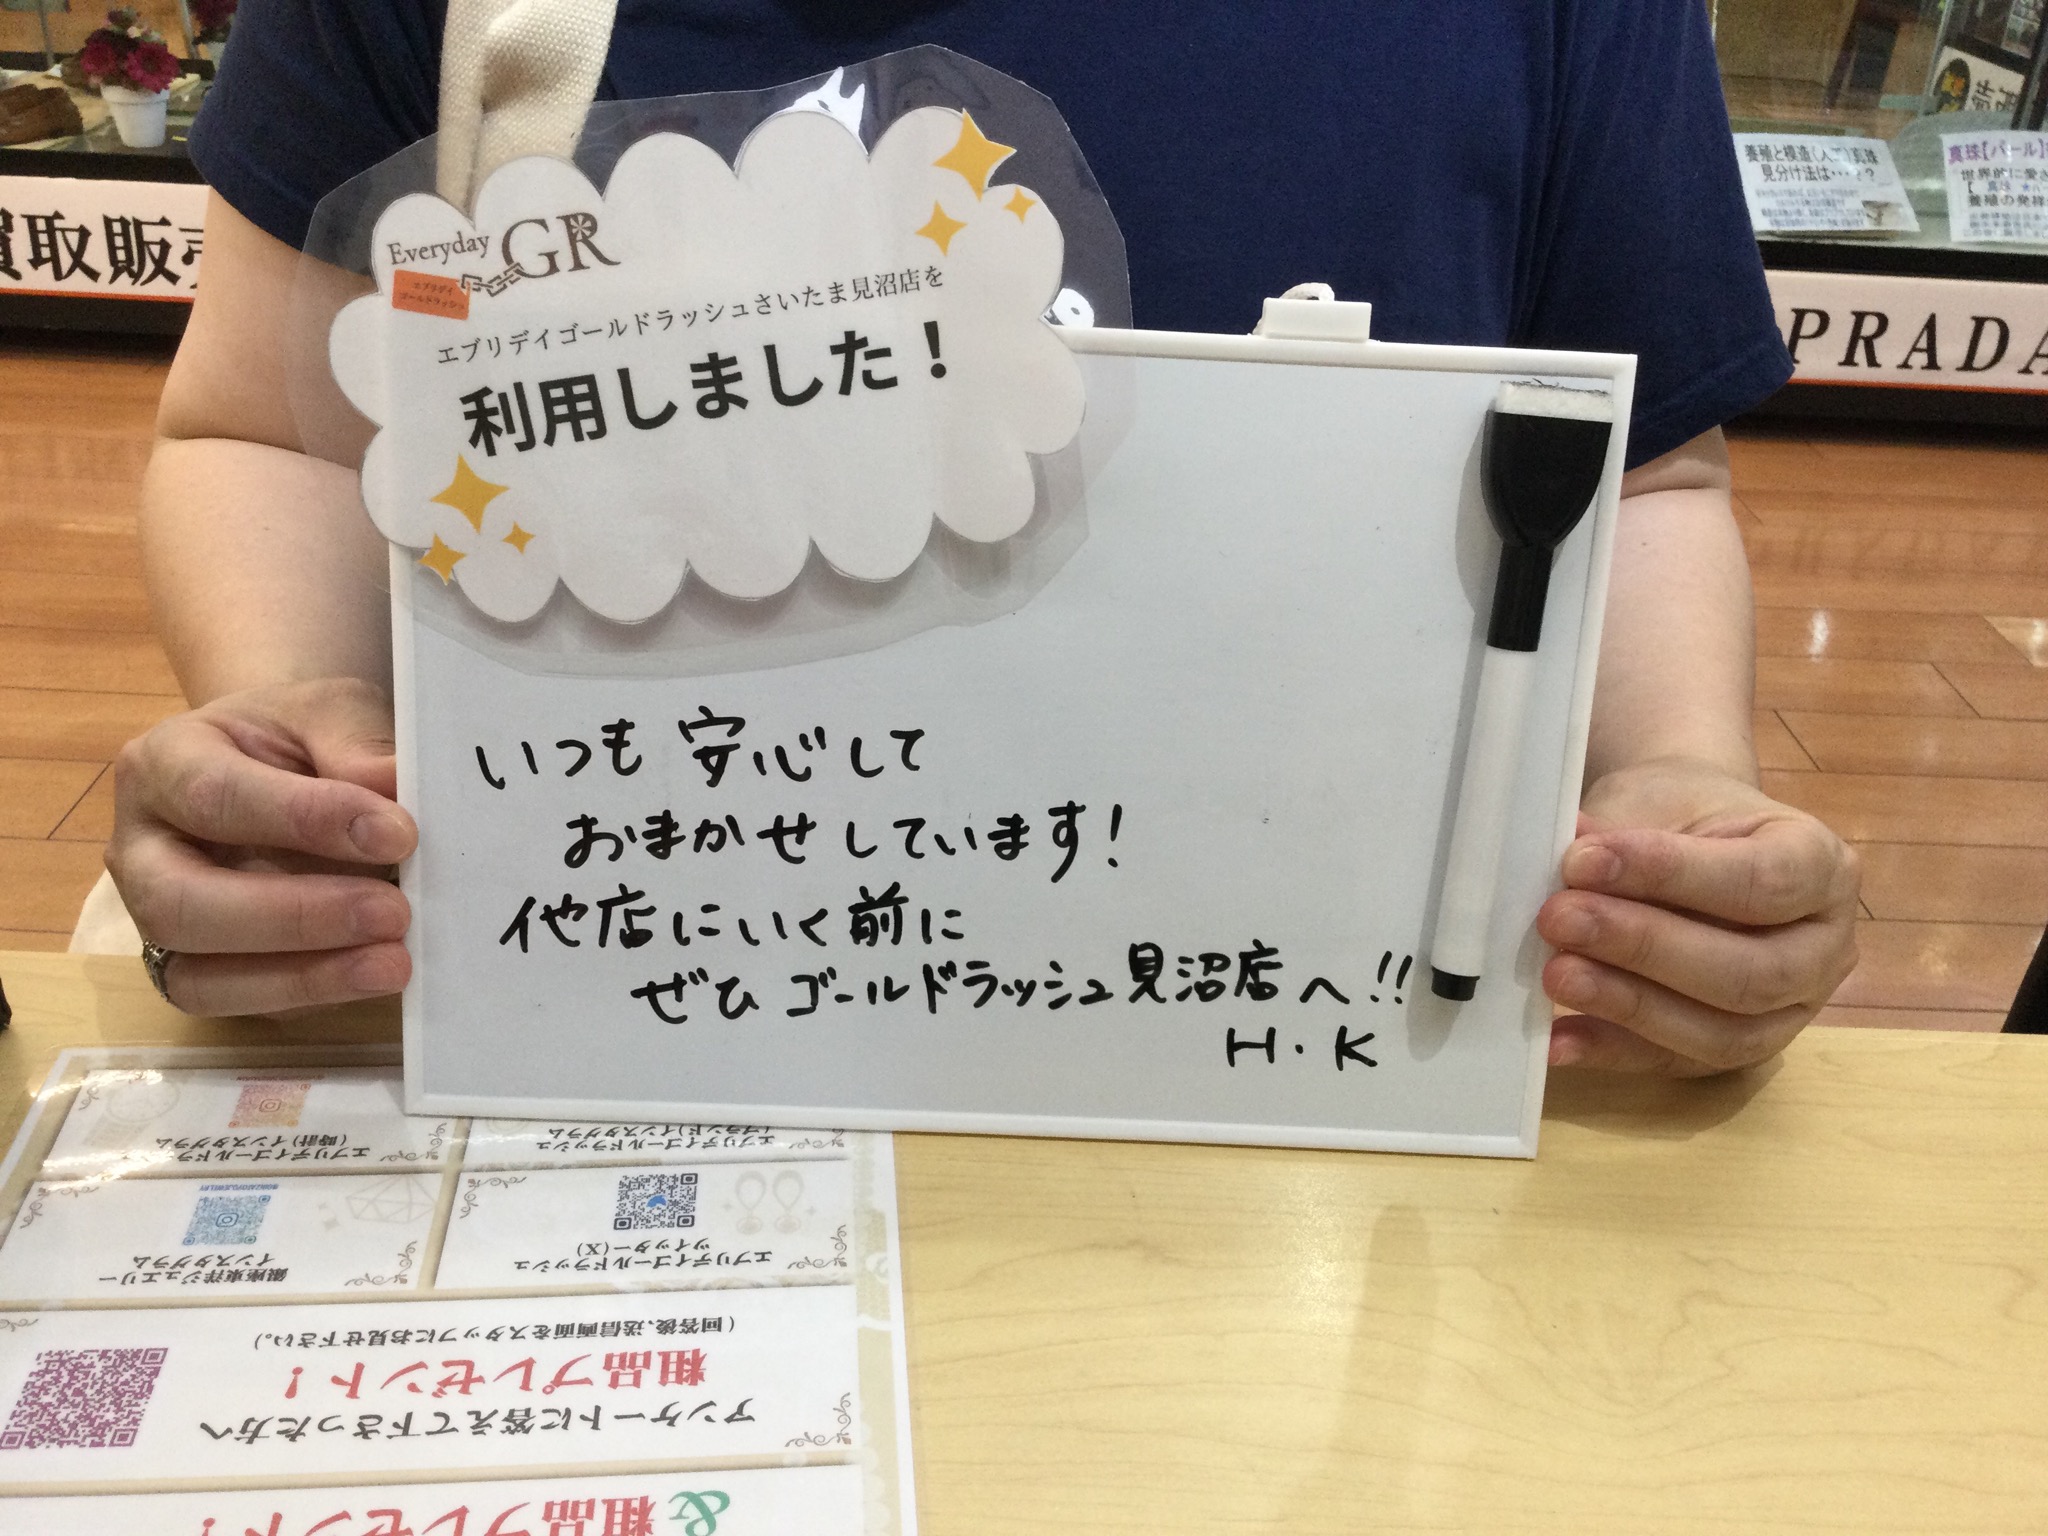 買取販売
Everyday GR
エブリデイ
ゴールドラッシュ
エブリデイゴールドラッシュさいたま見沼店を
利用しました！
養殖と模造(人工)真珠
見分け法は・・・？？
真珠【パール】
世界的に愛さ
養殖の発祥
PRADA
いつも安心して
おまかせしています！
他店にいく前に
ぜひゴールドラッシュ見沼店へ!!
H・K
エブリデイゴールドラッシュ
(時計)インスタグラム
エブリデイゴールドラッシュ
(ブランド)インスタグラム
銀座東洋ジュエリー
インスタグラム
エブリデイゴールドラッシュ
ツイッター(X)
アンケートに答えて下さった方へ
粗品プレゼント！
(回答後、送信画面をスタッフにお見せ下さい。)
&粗品プレゼント！